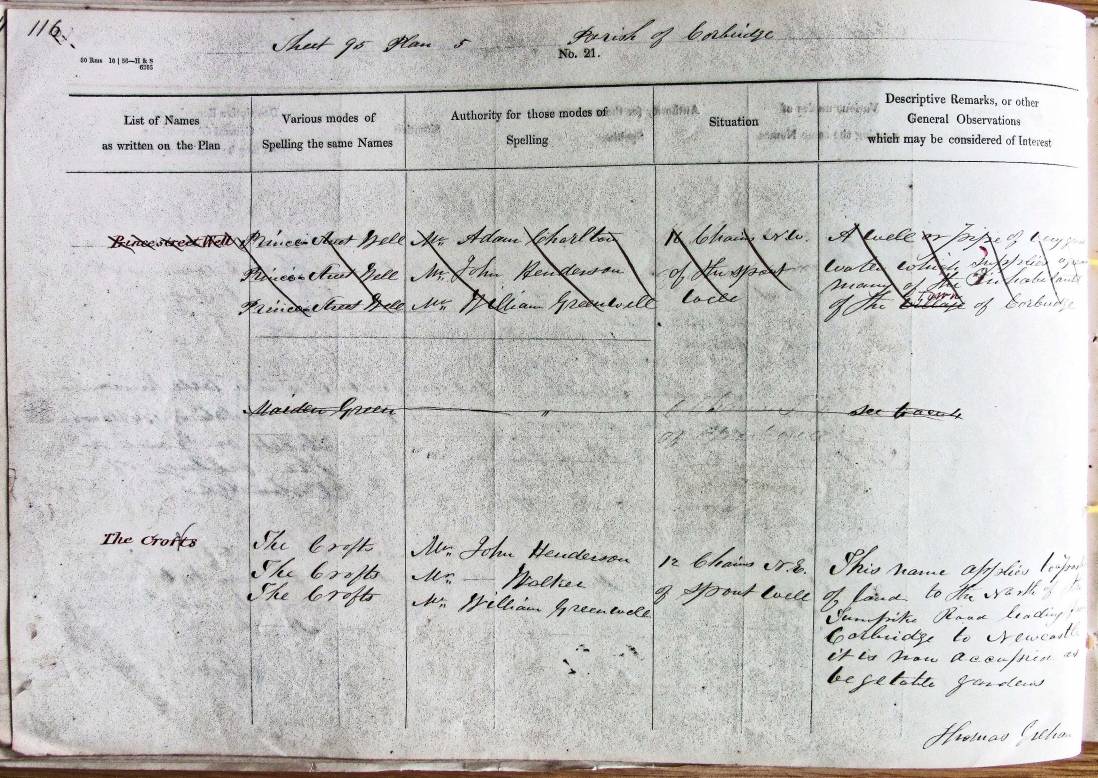 116
Sheet 95 Plan 5 Parish of Corbridge
No. 21.
50 Rms 10 | 56—H & S
6205
List of Names
as written on the Plan
Various modes of
Spelling the same Names
Authority for those modes of
Spelling
Situation
Descriptive Remarks, or other
General Observations
which may be considered of Interest
Princestreet Well
Princes Street Well
Princes Street Well
Princes Street Well
Mr. Adam Charlton
Mr. John Henderson
Mr. William Greenwell
Chains N.W.
of the Spout
Well
A Well or Pipe of very
water which supplies
many of the Inhabitants
of the Village Town of Corbridge
Maiden Green
"
see
The Crofts
The Crofts
The Crofts
The Crofts
Mr. John Henderson
Mr. — Walker
Mr. William Greenwell
12 Chains N.E.
of Spout Well
This name applies to
of land to the North of
Turnpike Road leading
Corbridge to Newcastle
it is now occupied as
Vegetable gardens
Thomas